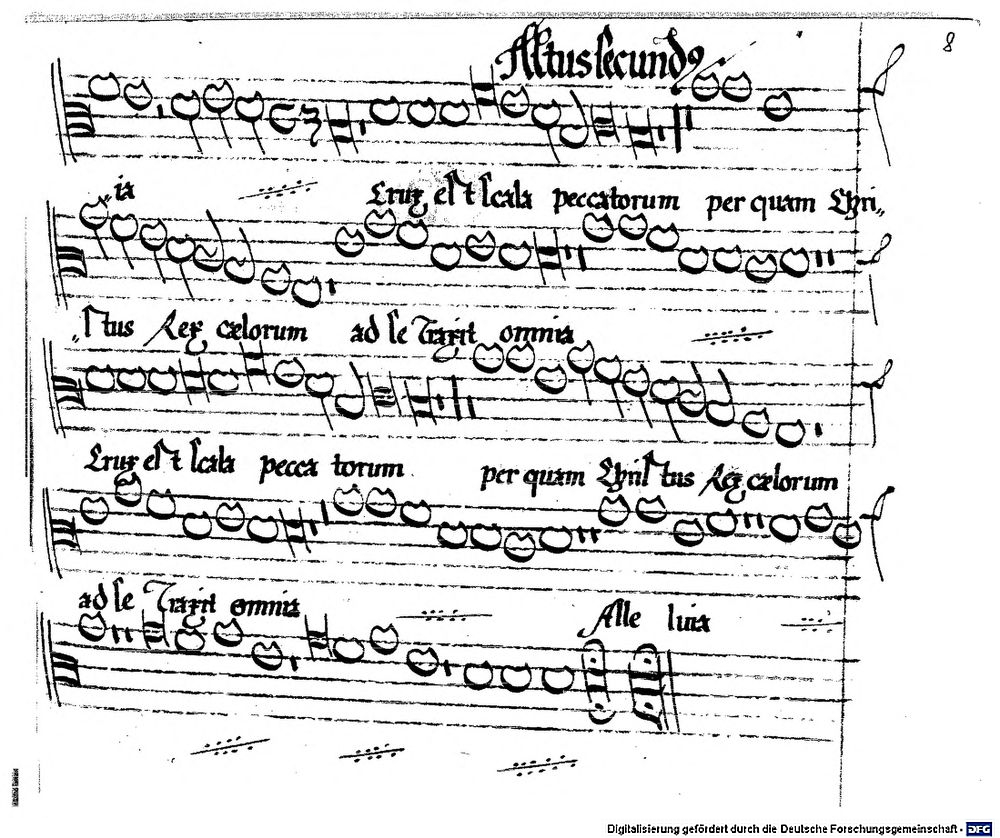 Altus secund9
8
ia Crux est scala peccatorum per quam Chri„
„stus Rex cælorum ad se Traxit omnia
Crux est scala pecca torum per quam Christus Rex cælorum
ad se Traxit omnia Alle luia
Digitalisierung gefördert durch die Deutsche Forschungsgemeinschaft - DFG